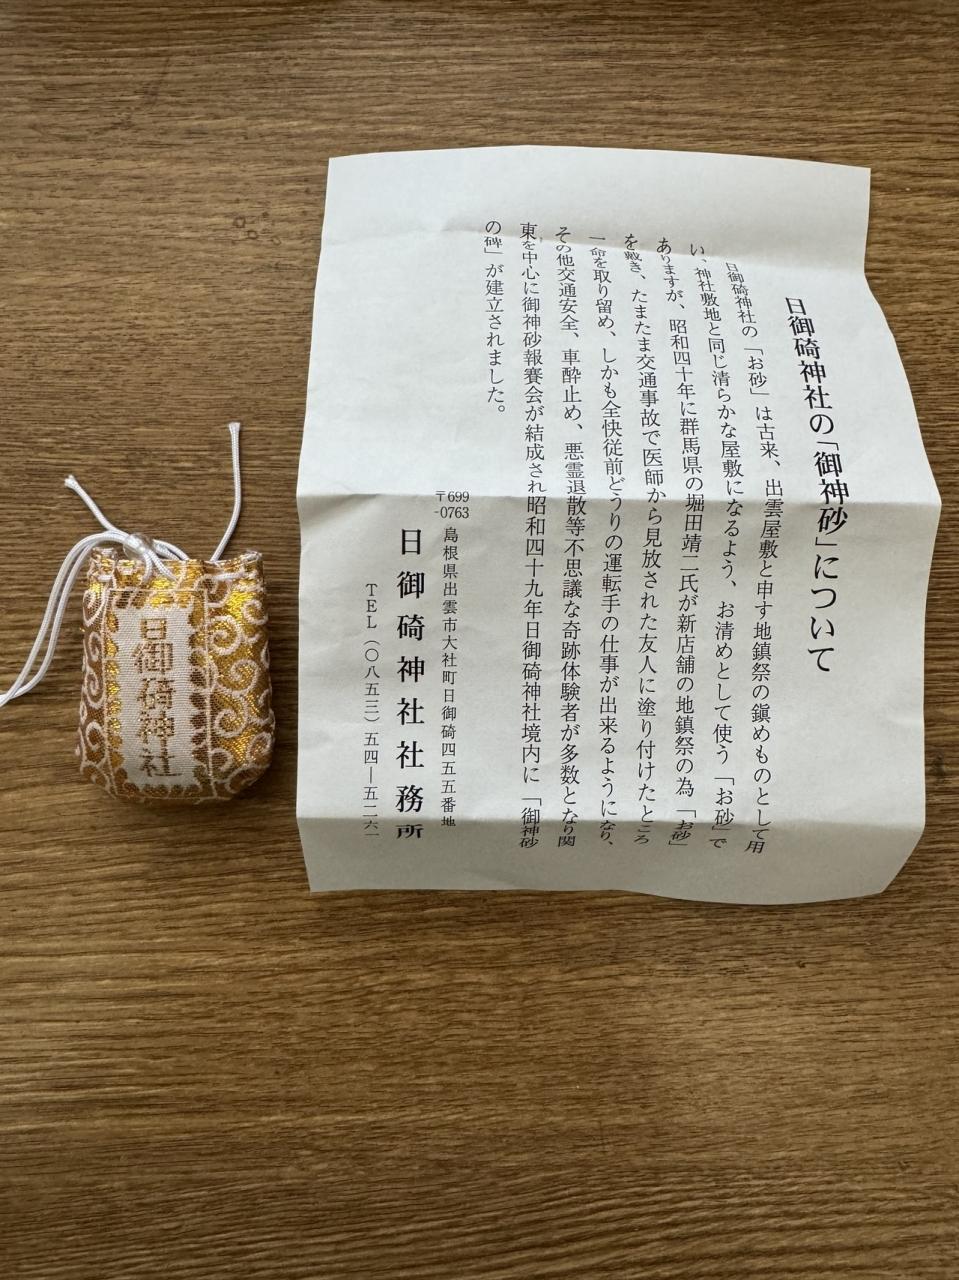 日御碕神社の「御神砂」について
日御碕神社の「お砂」は古来、出雲屋敷と申す地鎮祭の鎭めものとして用
い、神社敷地と同じ清らかな屋敷になるよう、お清めとして使う「お砂」で
ありますが、昭和四十年に群馬県の堀田靖二氏が新店舗の地鎮祭の為「お砂」
を戴き、たまたま交通事故で医師から見放された友人に塗り付けたところ
一命を取り留め、しかも全快従前どうりの運転手の仕事が出来るようになり、
その他交通安全、車酔止め、悪霊退散等不思議な奇跡体験者が多数となり関
東を中心に御神砂報賽会が結成され昭和四十九年日御碕神社境内に「御神砂
の碑」が建立されました。
〒699-0763 島根県出雲市大社町日御碕四五五番地
日御碕神社社務所
TEL(〇八五三)五四―五二六一
日御碕神社